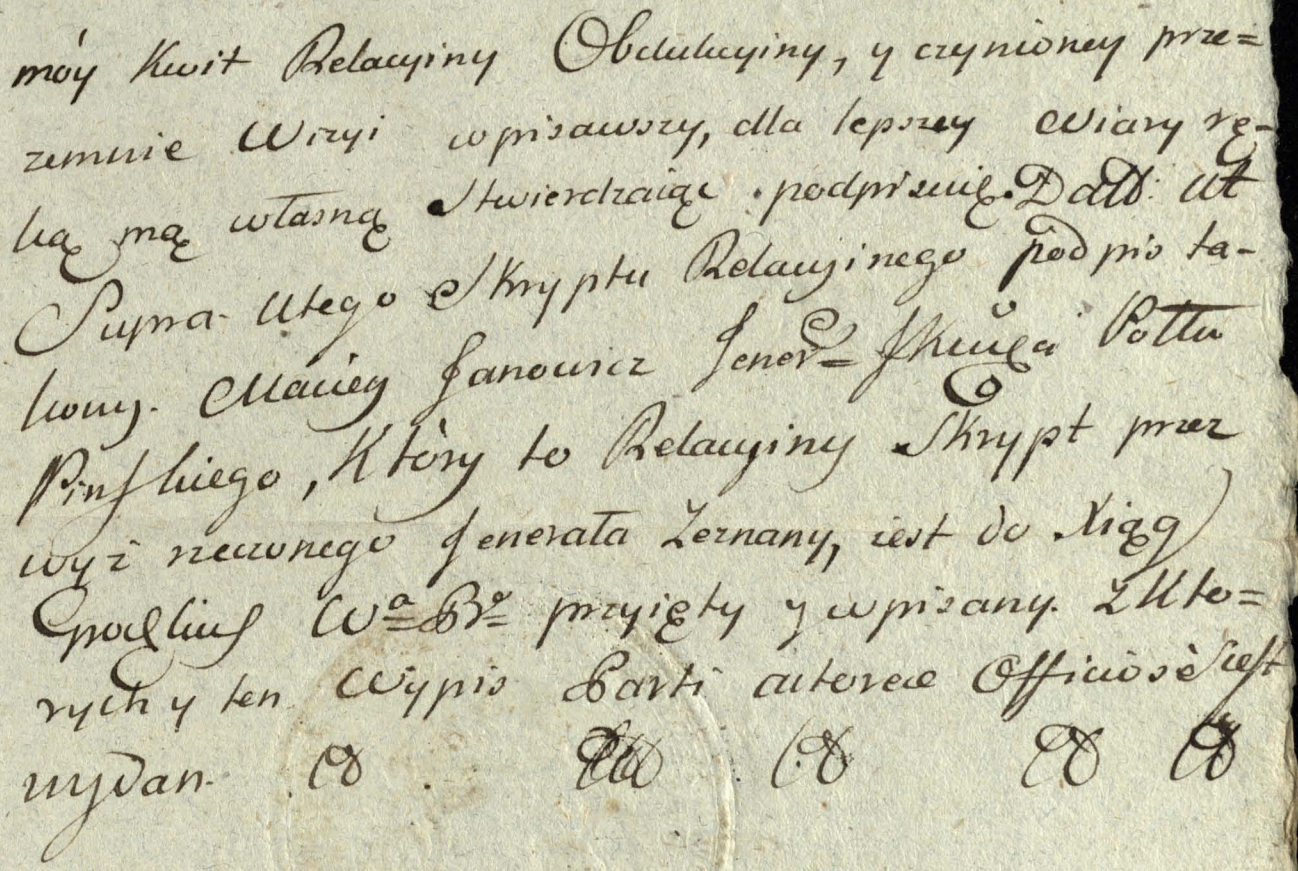 móy Kwit Relacyiny Obdukcyiny, y czynioney prze=
zemnie Wizyi wpisawszy, dla lepszey Wiary rę-
ką mą własną Stwierdzaiąc podpisuię. Datt: ut
Supra. U tego Skryptu Relacyinego podpis ta-
kowy. Maciey Janowicz Jener. JKMości Pottu
Pinskiego, Który to Relacyiny Skrypt przez
wyż rzeczonego Jenerała Zeznany, iest do Xiąg
Grodzkich Wa Bo przyięty y wpisany. Z Kto=
rych y ten Wypis Parti actoreae Officiose iest
wydan.